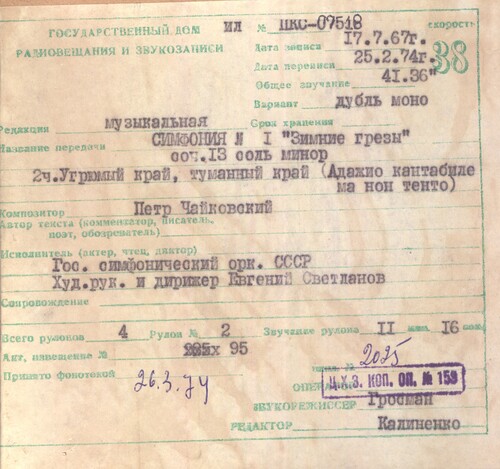 ГОСУДАРСТВЕННЫЙ ДОМ ИЛ № ЦКС-07518 скорость
РАДИОВЕЩАНИЯ И ЗВУКОЗАПИСИ Дата записи 17.7.67г. 38
Дата перезаписи 25.2.74г.
Общее звучание 41.36"
Вариант дубль моно
Редакция музыкальная Срок хранения
Название передачи СИМФОНИЯ № I "Зимние грезы"
соч.13 соль минор
2ч.Угрюмый край, туманный край (Адажио кантабиле
ма нон тенто)
Композитор Петр Чайковский
Автор текста (комментатор, писатель,
поэт, обозреватель)
Исполнитель (актер, чтец, диктор)
Гос. симфонический орк. СССР
Худ.рук. и дирижер Евгений Светланов
Сопровождение
Всего рулонов 4 Рулон № 2 Звучание рулона II мин. 16 сек.
Акт, извещение № 95
Принято фонотекой 26.3.74 2025
ОПЕРАТОР Ц.Х.З. КОП. ОП. № 159
ЗВУКОРЕЖИССЕР Гросман
РЕДАКТОР Калиненко